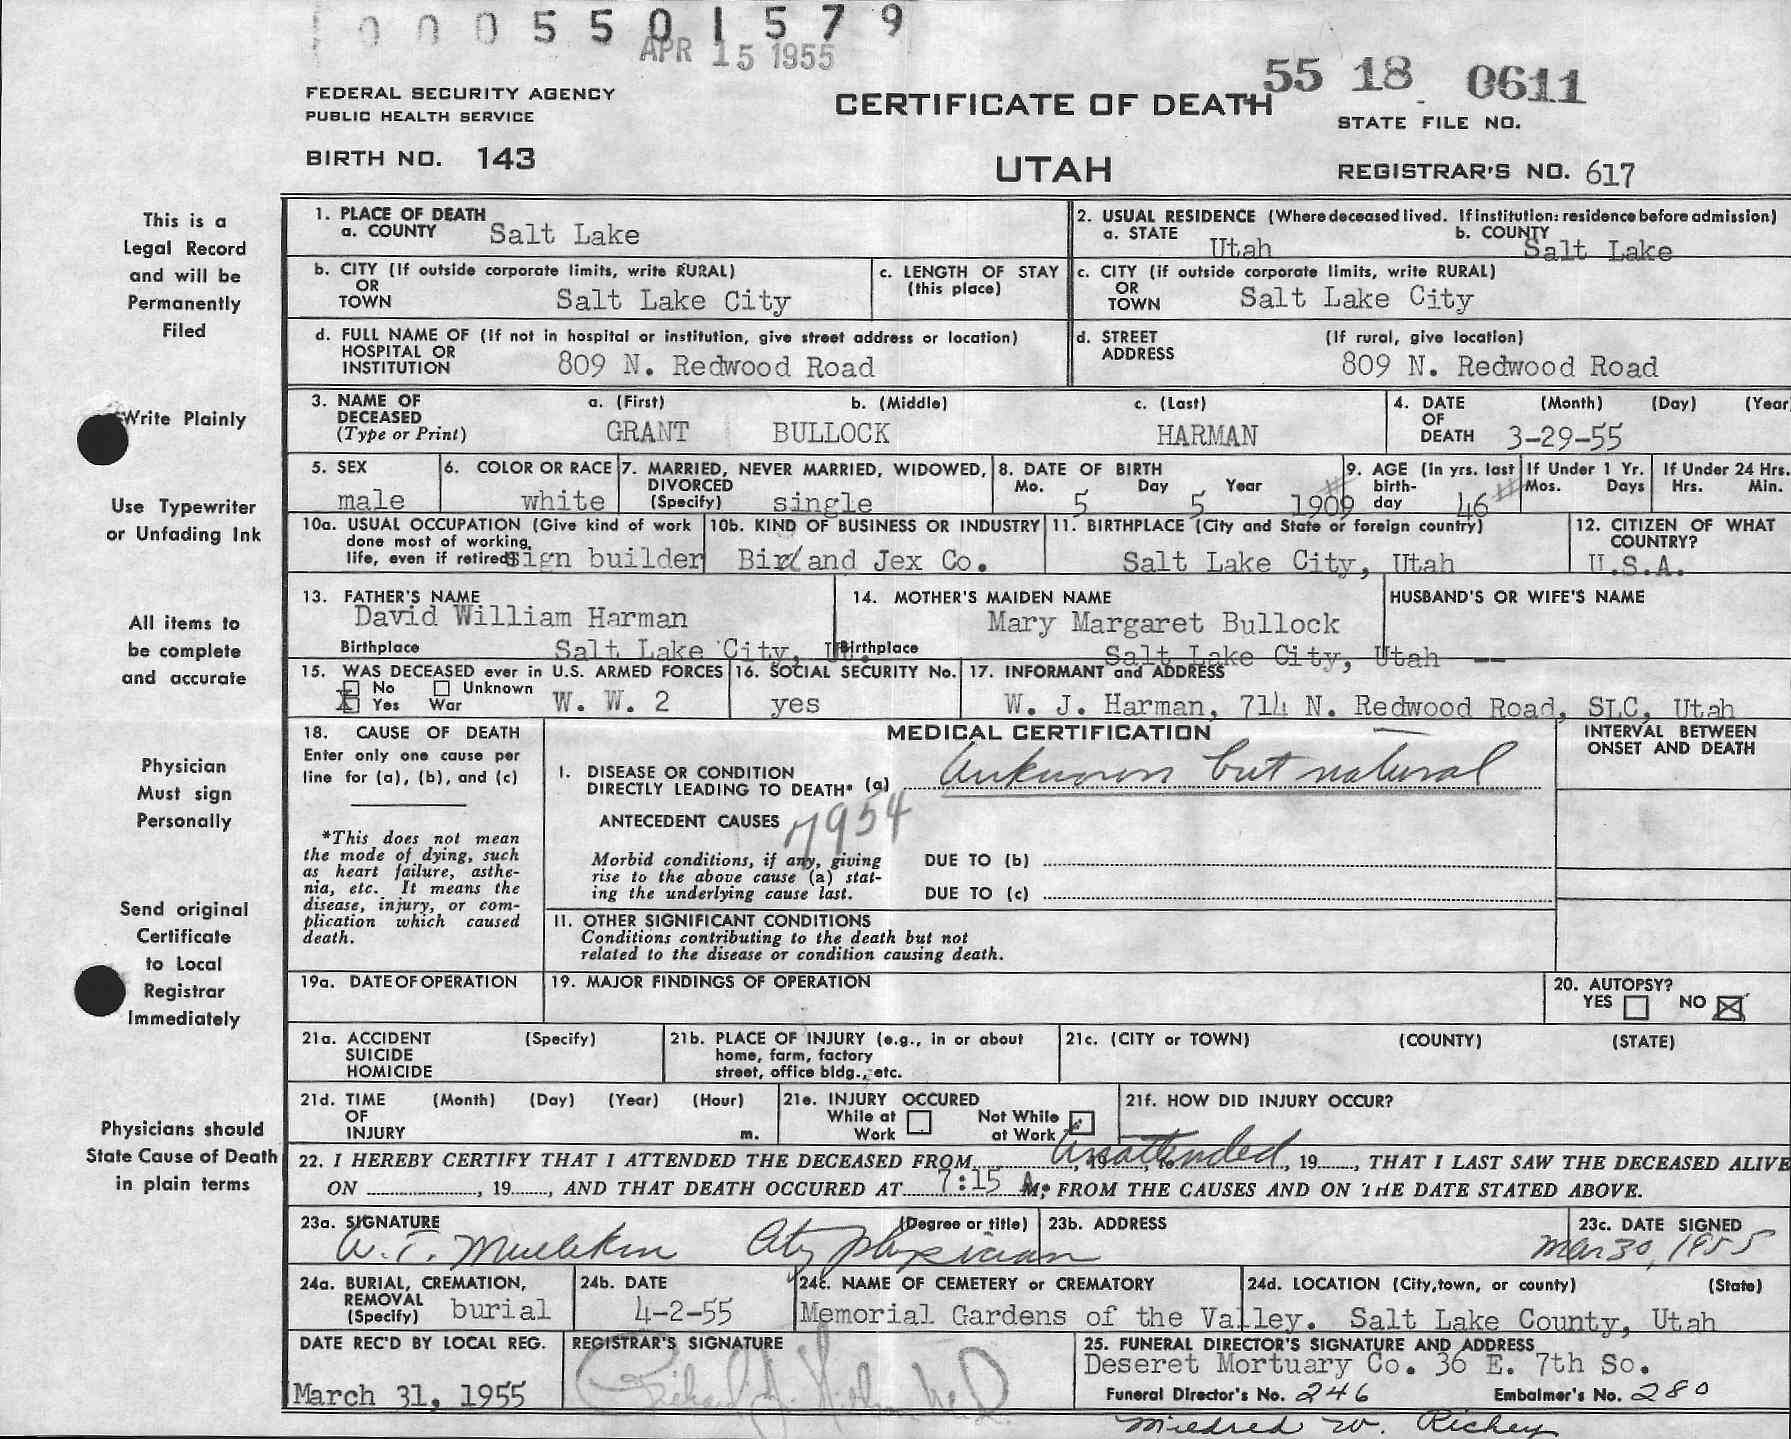 0 0 0 5 5 0 1 5 7 9
APR 15 1955
55 18 0611
FEDERAL SECURITY AGENCY
PUBLIC HEALTH SERVICE
CERTIFICATE OF DEATH
STATE FILE NO.
BIRTH NO. 143
UTAH
REGISTRAR'S NO. 617
This is a
Legal Record
and will be
Permanently
Filed
Write Plainly
Use Typewriter
or Unfading Ink
All items to
be complete
and accurate
Physician
Must sign
Personally
Send original
Certificate
to Local
Registrar
Immediately
Physicians should
State Cause of Death
in plain terms
1. PLACE OF DEATH
a. COUNTY Salt Lake
2. USUAL RESIDENCE (Where deceased lived. If institution: residence before admission)
a. STATE Utah b. COUNTY Salt Lake
b. CITY (If outside corporate limits, write RURAL)
OR
TOWN Salt Lake City
c. LENGTH OF STAY
(this place)
c. CITY (if outside corporate limits, write RURAL)
OR
TOWN Salt Lake City
d. FULL NAME OF (If not in hospital or institution, give street address or location)
HOSPITAL OR
INSTITUTION 809 N. Redwood Road
d. STREET (If rural, give location)
ADDRESS 809 N. Redwood Road
3. NAME OF a. (First) b. (Middle) c. (Last)
DECEASED
(Type or Print) GRANT BULLOCK HARMAN
4. DATE (Month) (Day) (Year
OF
DEATH 3-29-55
5. SEX
male
6. COLOR OR RACE
white
7. MARRIED, NEVER MARRIED, WIDOWED,
DIVORCED
(Specify) single
8. DATE OF BIRTH
Mo. Day Year
5 5 1909
9. AGE (In yrs. last
birth-
day 46
If Under 1 Yr.
Mos. Days
If Under 24 Hrs.
Hrs. Min.
10a. USUAL OCCUPATION (Give kind of work
done most of working
life, even if retired) sign builder
10b. KIND OF BUSINESS OR INDUSTRY
Bird and Jex Co.
11. BIRTHPLACE (City and State or foreign country)
Salt Lake City, Utah
12. CITIZEN OF WHAT
COUNTRY?
U.S.A.
13. FATHER'S NAME
David William Harman
Birthplace Salt Lake City, Ut.
14. MOTHER'S MAIDEN NAME
Mary Margaret Bullock
Birthplace Salt Lake City, Utah
HUSBAND'S OR WIFE'S NAME
--
15. WAS DECEASED ever in U.S. ARMED FORCES
No Unknown
X Yes War W. W. 2
16. SOCIAL SECURITY No.
yes
17. INFORMANT and ADDRESS
W. J. Harman, 714 N. Redwood Road, SLC, Utah
18. CAUSE OF DEATH
Enter only one cause per
line for (a), (b), and (c)
*This does not mean
the mode of dying, such
as heart failure, asthe-
nia, etc. It means the
disease, injury, or com-
plication which caused
death.
MEDICAL CERTIFICATION
INTERVAL BETWEEN
ONSET AND DEATH
I. DISEASE OR CONDITION
DIRECTLY LEADING TO DEATH* (a) Unknown but natural
ANTECEDENT CAUSES 7954
Morbid conditions, if any, giving
rise to the above cause (a) stat-
ing the underlying cause last.
DUE TO (b)
DUE TO (c)
II. OTHER SIGNIFICANT CONDITIONS
Conditions contributing to the death but not
related to the disease or condition causing death.
19a. DATE OF OPERATION
19. MAJOR FINDINGS OF OPERATION
20. AUTOPSY?
YES NO X
21a. ACCIDENT (Specify)
SUICIDE
HOMICIDE
21b. PLACE OF INJURY (e.g., in or about
home, farm, factory
street, office bldg., etc.
21c. (CITY or TOWN) (COUNTY) (STATE)
21d. TIME (Month) (Day) (Year) (Hour)
OF
INJURY m.
21e. INJURY OCCURED
While at Not While
Work at Work
21f. HOW DID INJURY OCCUR?
22. I HEREBY CERTIFY THAT I ATTENDED THE DECEASED FROM Unattended, 19, to, 19, THAT I LAST SAW THE DECEASED ALIVE
ON, 19, AND THAT DEATH OCCURED AT 7:15 A M, FROM THE CAUSES AND ON THE DATE STATED ABOVE.
23a. SIGNATURE (Degree or title)
W. T. City physician
23b. ADDRESS
23c. DATE SIGNED
Mar 30, 1955
24a. BURIAL, CREMATION,
REMOVAL
(Specify) burial
24b. DATE
4-2-55
24c. NAME OF CEMETERY or CREMATORY
Memorial Gardens of the Valley.
24d. LOCATION (City, town, or county) (State)
Salt Lake County, Utah
DATE REC'D BY LOCAL REG.
March 31, 1955
REGISTRAR'S SIGNATURE
25. FUNERAL DIRECTOR'S SIGNATURE AND ADDRESS
Deseret Mortuary Co. 36 E. 7th So.
Funeral Director's No. 246 Embalmer's No. 280
Mildred W. Richey